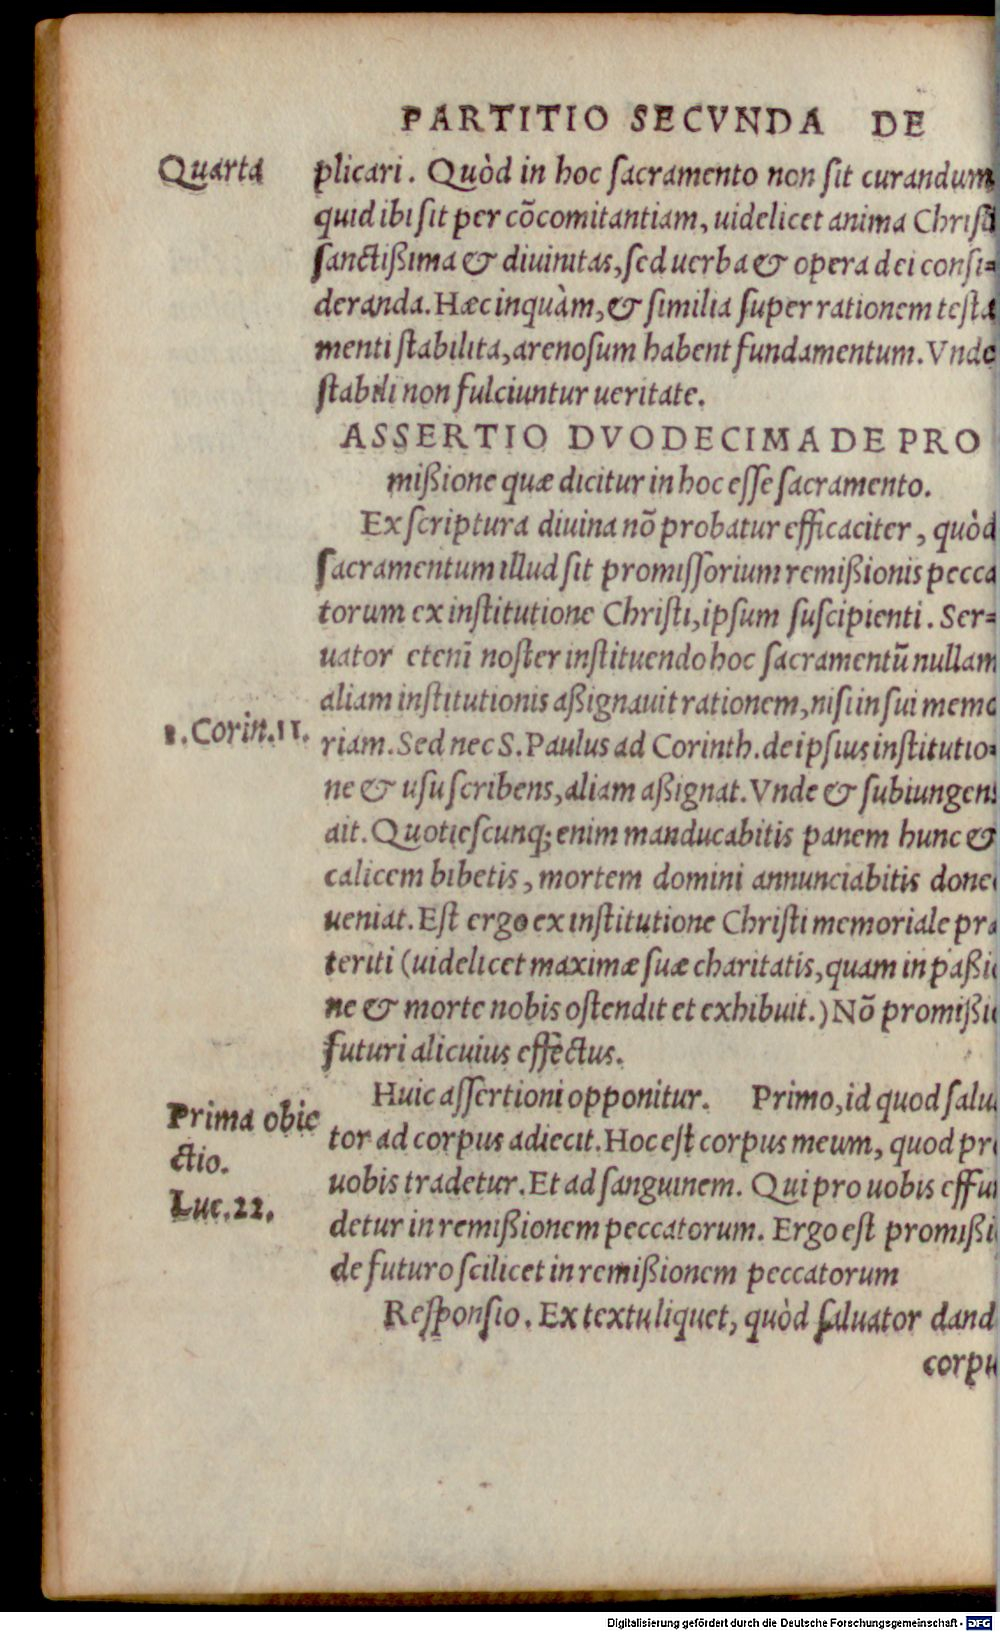 PARTITIO SECVNDA DE
Quarta
plicari. Quòd in hoc ſacramento non ſit curandum,
quid ibi ſit per cōcomitantiam, uidelicet anima Chriſti
ſanctißima & diuinitas, ſed uerba & opera dei conſi=
deranda. Hæc inquàm, & ſimilia ſuper rationem teſta
menti ſtabilita, arenoſum habent fundamentum. Vnde
ſtabili non fulciuntur ueritate.
ASSERTIO DVODECIMA DE PRO
mißione quæ dicitur in hoc eſſe ſacramento.
Ex ſcriptura diuina nō probatur efficaciter, quòd
ſacramentum illud ſit promiſſorium remißionis pecca
torum ex inſtitutione Chriſti, ipſum ſuſcipienti. Ser=
uator etenī noſter inſtituendo hoc ſacramentū nullam
aliam inſtitutionis aßignauit rationem, niſi in ſui memo
1. Corin. 11.
riam. Sed nec S. Paulus ad Corinth. de ipſius inſtitutio=
ne & uſu ſcribens, aliam aßignat. Vnde & ſubiungens
ait. Quotieſcunq; enim manducabitis panem hunc &
calicem bibetis, mortem domini annunciabitis donec
ueniat. Eſt ergo ex inſtitutione Chriſti memoriale præ
teriti (uidelicet maximæ ſuæ charitatis, quam in paßio
ne & morte nobis oſtendit et exhibuit.) Nō promißio
futuri alicuius effectus.
Huic aſſertioni opponitur. Primo, id quod ſalua
Prima obie
ctio.
Luc. 22.
tor ad corpus adiecit. Hoc eſt corpus meum, quod pro
uobis tradetur. Et ad ſanguinem. Qui pro uobis effun
detur in remißionem peccatorum. Ergo eſt promißio
de futuro ſcilicet in remißionem peccatorum
Reſponſio. Ex textu liquet, quòd ſaluator dand
corpu
Digitalisierung gefördert durch die Deutsche Forschungsgemeinschaft - DFG